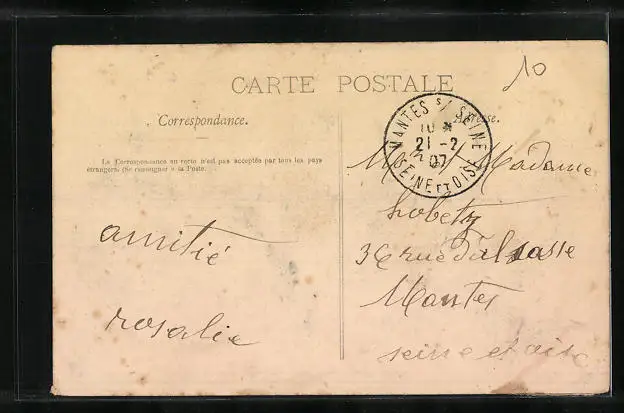 10
CARTE POSTALE
Correspondance.
Adresse.
La Correspondance au verso n'est pas acceptée par tous les pays
étrangers. (Se renseigner à la Poste.
MANTES s/ SEINE
10
21 -2
07
SEINE ET OISE
amitié
rosalie
M Madame
36 rue d'alsasse
Mantes
seine et oise